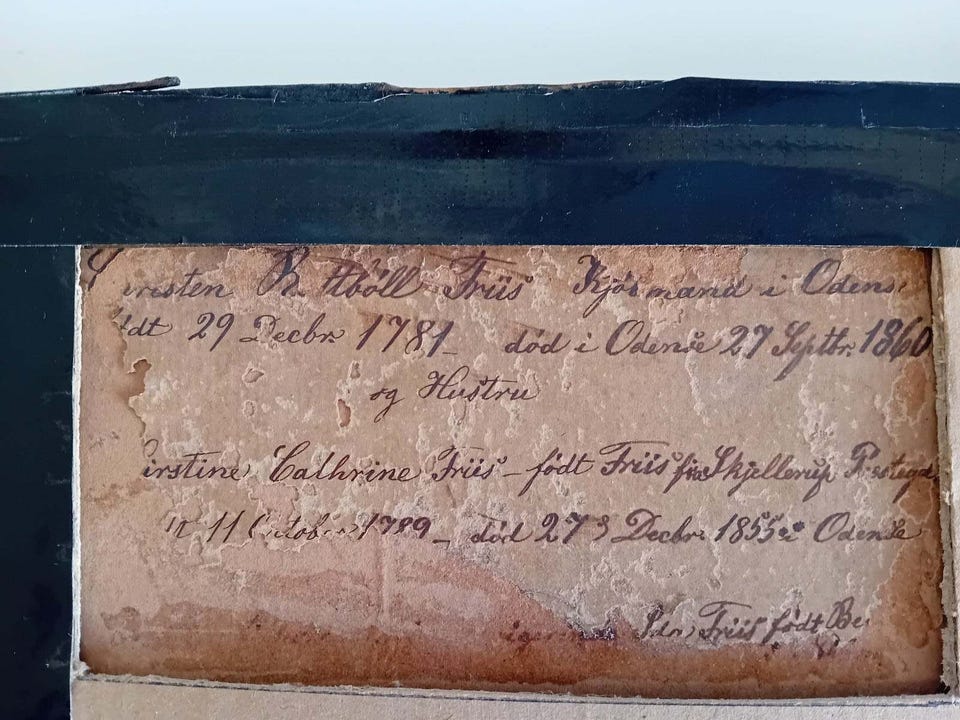 R. Høll Friis Kjøbmand i Odens
29 Decbr. 1781 død i Odense 27 Septbr. 1860
og Hustru
irstine Cathrine Friis – født Friis fra Skjellerup
11 October 1789 – død 27 Decbr. 1855 i Odense
Friis født Be